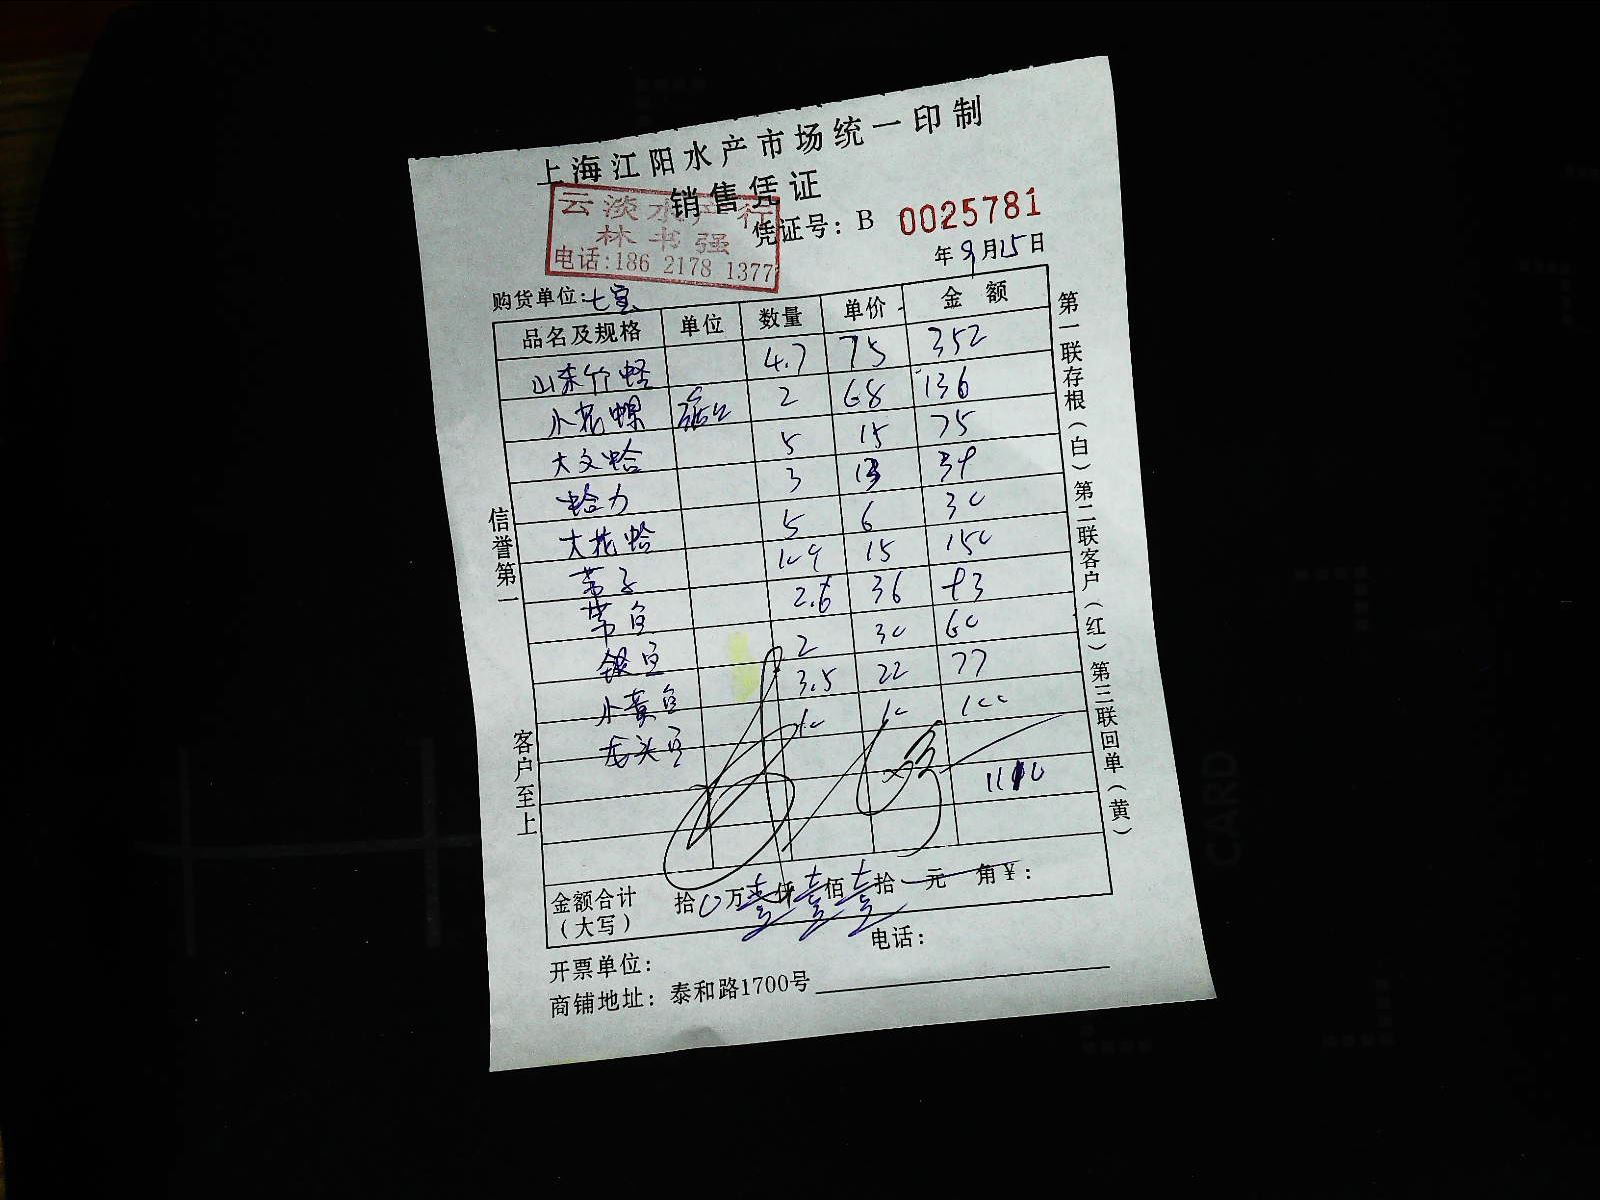 上海江阳水产市场统一印制
销售凭证
云淡水产行
林书强
电话:186 2178 1377
凭证号: B 0025781
年9月15日
购货单位:七宝
品名及规格 单位 数量 单价 金额
山东竹蛏 4.7 75 352
小花螺 2 68 136
大文蛤 5 15 75
蛤力 3 13 39
大花蛤 5 6 30
15 150
带鱼 2.6 36 93
银鱼 2 30 60
小黄鱼 3.5 22 77
龙头鱼 10 10 100
1110
金额合计
(大写)
拾0万壹仟壹佰壹拾 元 角¥:
开票单位: 电话:
商铺地址: 泰和路1700号
信誉第一
客户至上
第一联存根(白)第二联客户(红)第三联回单(黄)
CARD